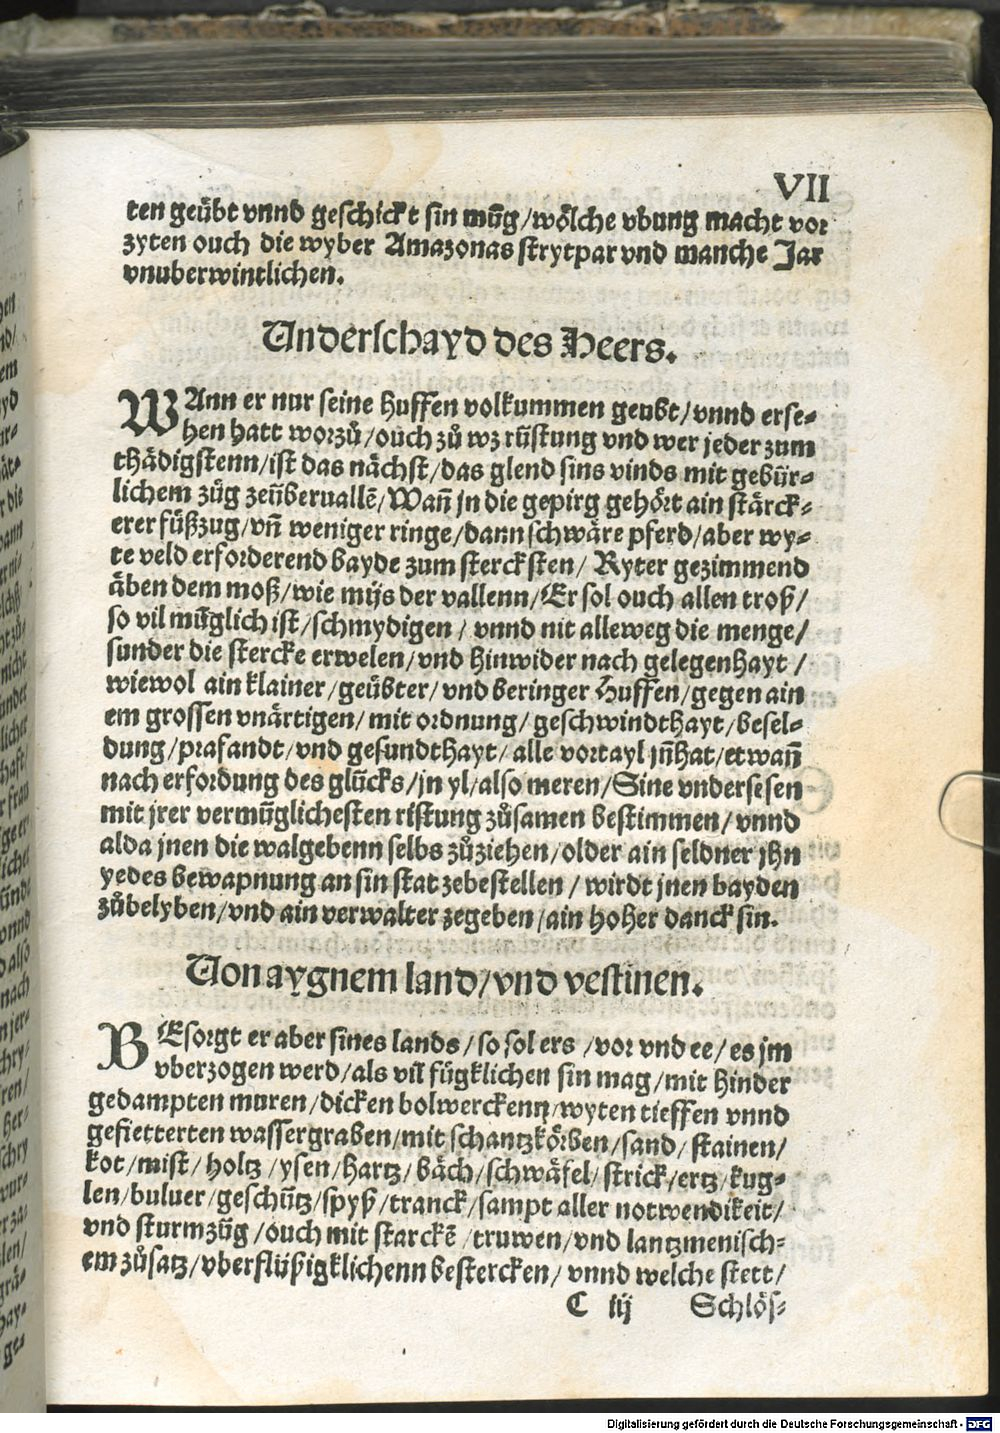 VII
ten geübt vnnd geschickt sin müg/wölche vbung macht vor
zyten ouch die wyber Amazonas strytpar vnd manche Jar
vnuberwintlichen.
Vnderschayd des Heers.
WAnn er nur seine Huffen volkummen geubt/vnnd erse-
hen hatt worzů/ouch zů wz rüstung vnd wer jeder zum
thädigstenn/ist das nächst/das glend sins vinds mit gebür-
lichem züg zeüberuallē/Wañ jn die gepirg gehört ain stärck-
erer füßzug/vñ weniger ringe/dann schwäre pferd/aber wy-
te veld erforderend bayde zum stercksten/Ryter gezimmend
äben dem moß/wie mijs der vallenn/Er sol ouch allen troß/
so vil müglich ist/schmydigen/vnnd nit alleweg die menge/
sunder die stercke erwelen/vnd hinwider nach gelegenhayt/
wiewol ain klainer/geübter/vnd beringer Huffen/gegen ain
em grossen vnärtigen/mit ordnung/geschwindthayt/besel-
dung/prafandt/vnd gesundthayt/alle vortayl jñhat/etwañ
nach erfordung des glücks/jn yl/also meren/Sine vndersesen
mit jrer vermüglichesten ristung zůsamen bestimmen/vnnd
alda jnen die walgebenn selbs zůziehen/older ain seldner jhn
yedes bewapnung an sin stat zebestellen/wirdt jnen bayden
zůbelyben/vnd ain verwalter zegeben/ain hoher danck sin.
Von aygnem land/vnd vestinen.
BEsorgt er aber sines lands/so sol ers/vor vnd ee/es jm
vberzogen werd/als vil fügklichen sin mag/mit hinder
gedampten muren/dicken bolwerckenn/wyten tieffen vnnd
gefietterten wassergraben/mit schantzkörben/sand/stainen/
kot/mist/holtz/ysen/hartz/bäch/schwäfel/strick/ertz/kug-
len/buluer/geschütz/spyß/tranck/sampt aller notwendikeit/
vnd sturmzüg/ouch mit starckē/truwen/vnd lantzmenisch-
em zůsatz/vberflüßigklichenn bestercken/vnnd welche stett/
C iij Schlös-
Digitalisierung gefördert durch die Deutsche Forschungsgemeinschaft - DFG